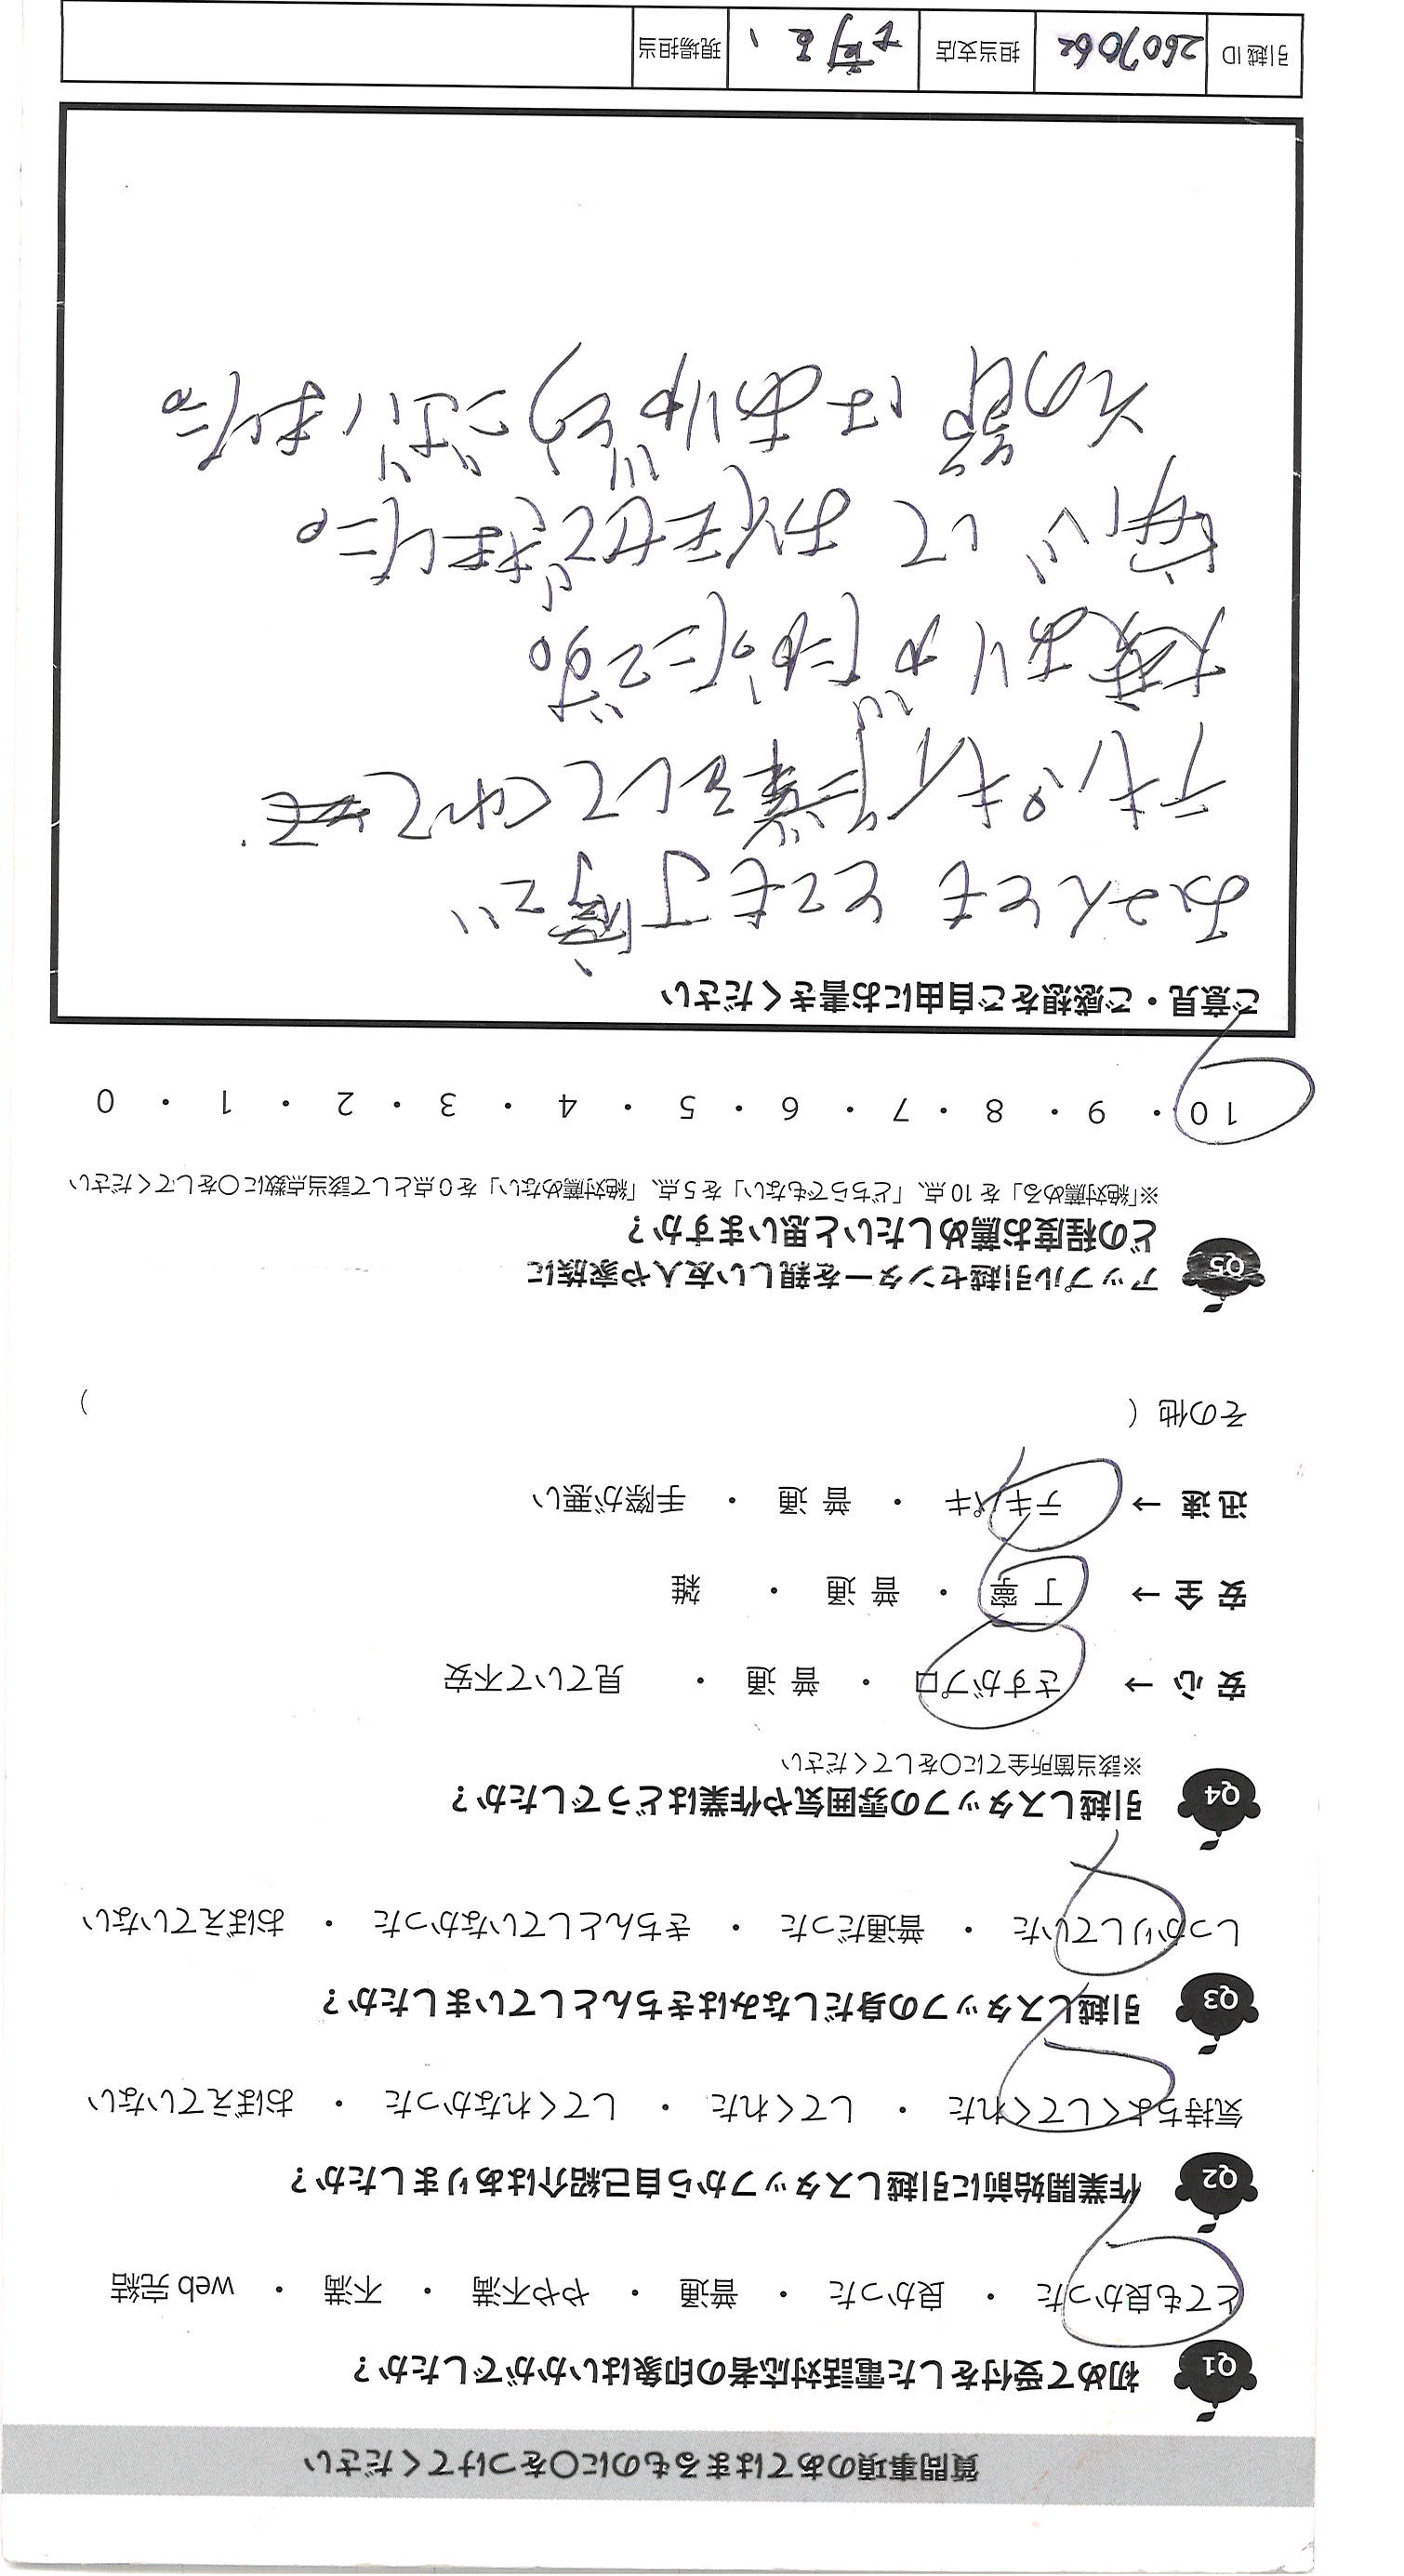 質問事項のあてはまるものに〇をつけてください
Q1 初めて受付をした電話対応者の印象はいかがでしたか？
とても良かった ・ 良かった ・ 普通 ・ やや不満 ・ 不満 ・ web完結
Q2 作業開始前に引越しスタッフから自己紹介はありましたか？
気持ちよくしてくれた ・ してくれた ・ してくれなかった ・ おぼえていない
Q3 引越しスタッフの身だしなみはきちんとしていましたか？
しっかりしていた ・ 普通だった ・ きちんとしていなかった ・ おぼえていない
Q4 引越しスタッフの雰囲気や作業はどうでしたか？
※該当箇所全てに〇をしてください
安心 → さすがプロ ・ 普通 ・ 見ていて不安
安全 → 丁寧 ・ 普通 ・ 雑
迅速 → テキパキ ・ 普通 ・ 手際が悪い
その他（ ）
Q5 アップル引越センターを親しい友人や家族に
どの程度お薦めしたいと思いますか？
※「絶対薦める」を10点、「どちらでもない」を5点、「絶対薦めない」を0点として該当点数に〇をしてください
10 ・ 9 ・ 8 ・ 7 ・ 6 ・ 5 ・ 4 ・ 3 ・ 2 ・ 1 ・ 0
ご意見・ご感想をご自由にお書きください
お二人とも とても丁寧で
テキパキ作業をしてくれて
大変ありがたかったです。
安心して おまかせできました。
その節はありがとうございました。
引越ID 2607062 担当支店 現場担当